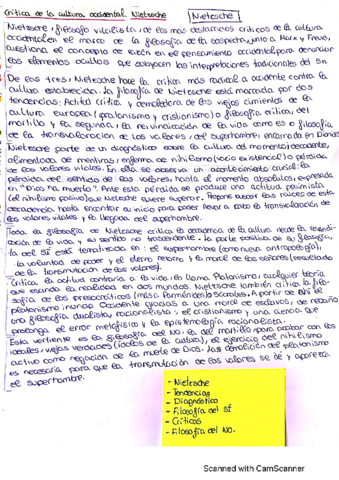 Crítica de la cultura occidental. Nietzsche
Nietzsche
Nietzsche, filósofo vitalista, de los más destacados críticos de la cultura
occidental en el marco de la filosofía de la sospecha junto a Marx y Freud,
cuestiona el concepto de razón en el pensamiento occidental para denunciar
los elementos ocultos que subyacen las interpretaciones tradicionales del ser.
De los tres, Nietzsche hace la crítica más radical a occidente contra la
cultura establecida. La filosofía de Nietzsche está marcada por dos
tendencias: Actitud crítica y demoledora de los viejos cimientos de la
cultura europea (platonismo y cristianismo) o filosofía crítica del
martillo y la segunda, la reivindicación de la vida como es o filosofía
de la transvaloración de los valores, del superhombre, encarnada en Dionos
Nietzsche parte de un diagnóstico sobre la cultura del momento: decadente,
alimentada de mentiras, enferma de nihilismo (vacío existencial) o pérdida
de los valores vitales. En ella se observa un acontecimiento crucial: la
pérdida del sentido de los valores, hasta el momento absolutos, expresada
en "Dios ha muerto". Ante esta pérdida se produce una actitud pesimista
(el nihilismo pasivo) que Nietzsche quiere superar. Propone buscar las raíces de esta
decadencia hasta encontrar su inicio para poder llevar a cabo la transvaloración de
los valores vitales y la llegada del superhombre.
Toda la filosofía de Nietzsche critica la decadencia de la cultura desde la reivindi-
cación de la vida y su sentido no trascendente. La parte positiva de su filosofía,
la del sí está tematizada en: el superhombre (como nueva antropología),
la voluntad de poder y el eterno retorno y la moral de los señores (resultado
de la transmutación de los valores).
Critica la actitud contraria a la vida, la llama Platonismo, cualquier teoría
que escinda la realidad en dos mundos. Nietzsche también critica la filo-
sofía de los presocráticos (más Parménides) Sócrates. A partir de ahí el
platonismo inunda Occidente gracias a una moral de esclavos, de rebaño
una filosofía dualista, racionalista: el cristianismo y una ciencia que
prolonga el error metafísico y la epistemología racionalista.
Esta vertiente es la filosofía del No, la del martillo para acabar con los
ideales, viejas verdades (ídolos de la cultura), el ejercicio del nihilismo
activo como negación de la muerte de Dios. Las demolición del platonismo
es necesaria para que la transmutación de los valores se dé y aparezca
el superhombre.
- Nietzsche
- Tendencias
- Diagnóstico
- Filosofía del Sí
- Críticas
- Filosofía del No.
Scanned with CamScanner